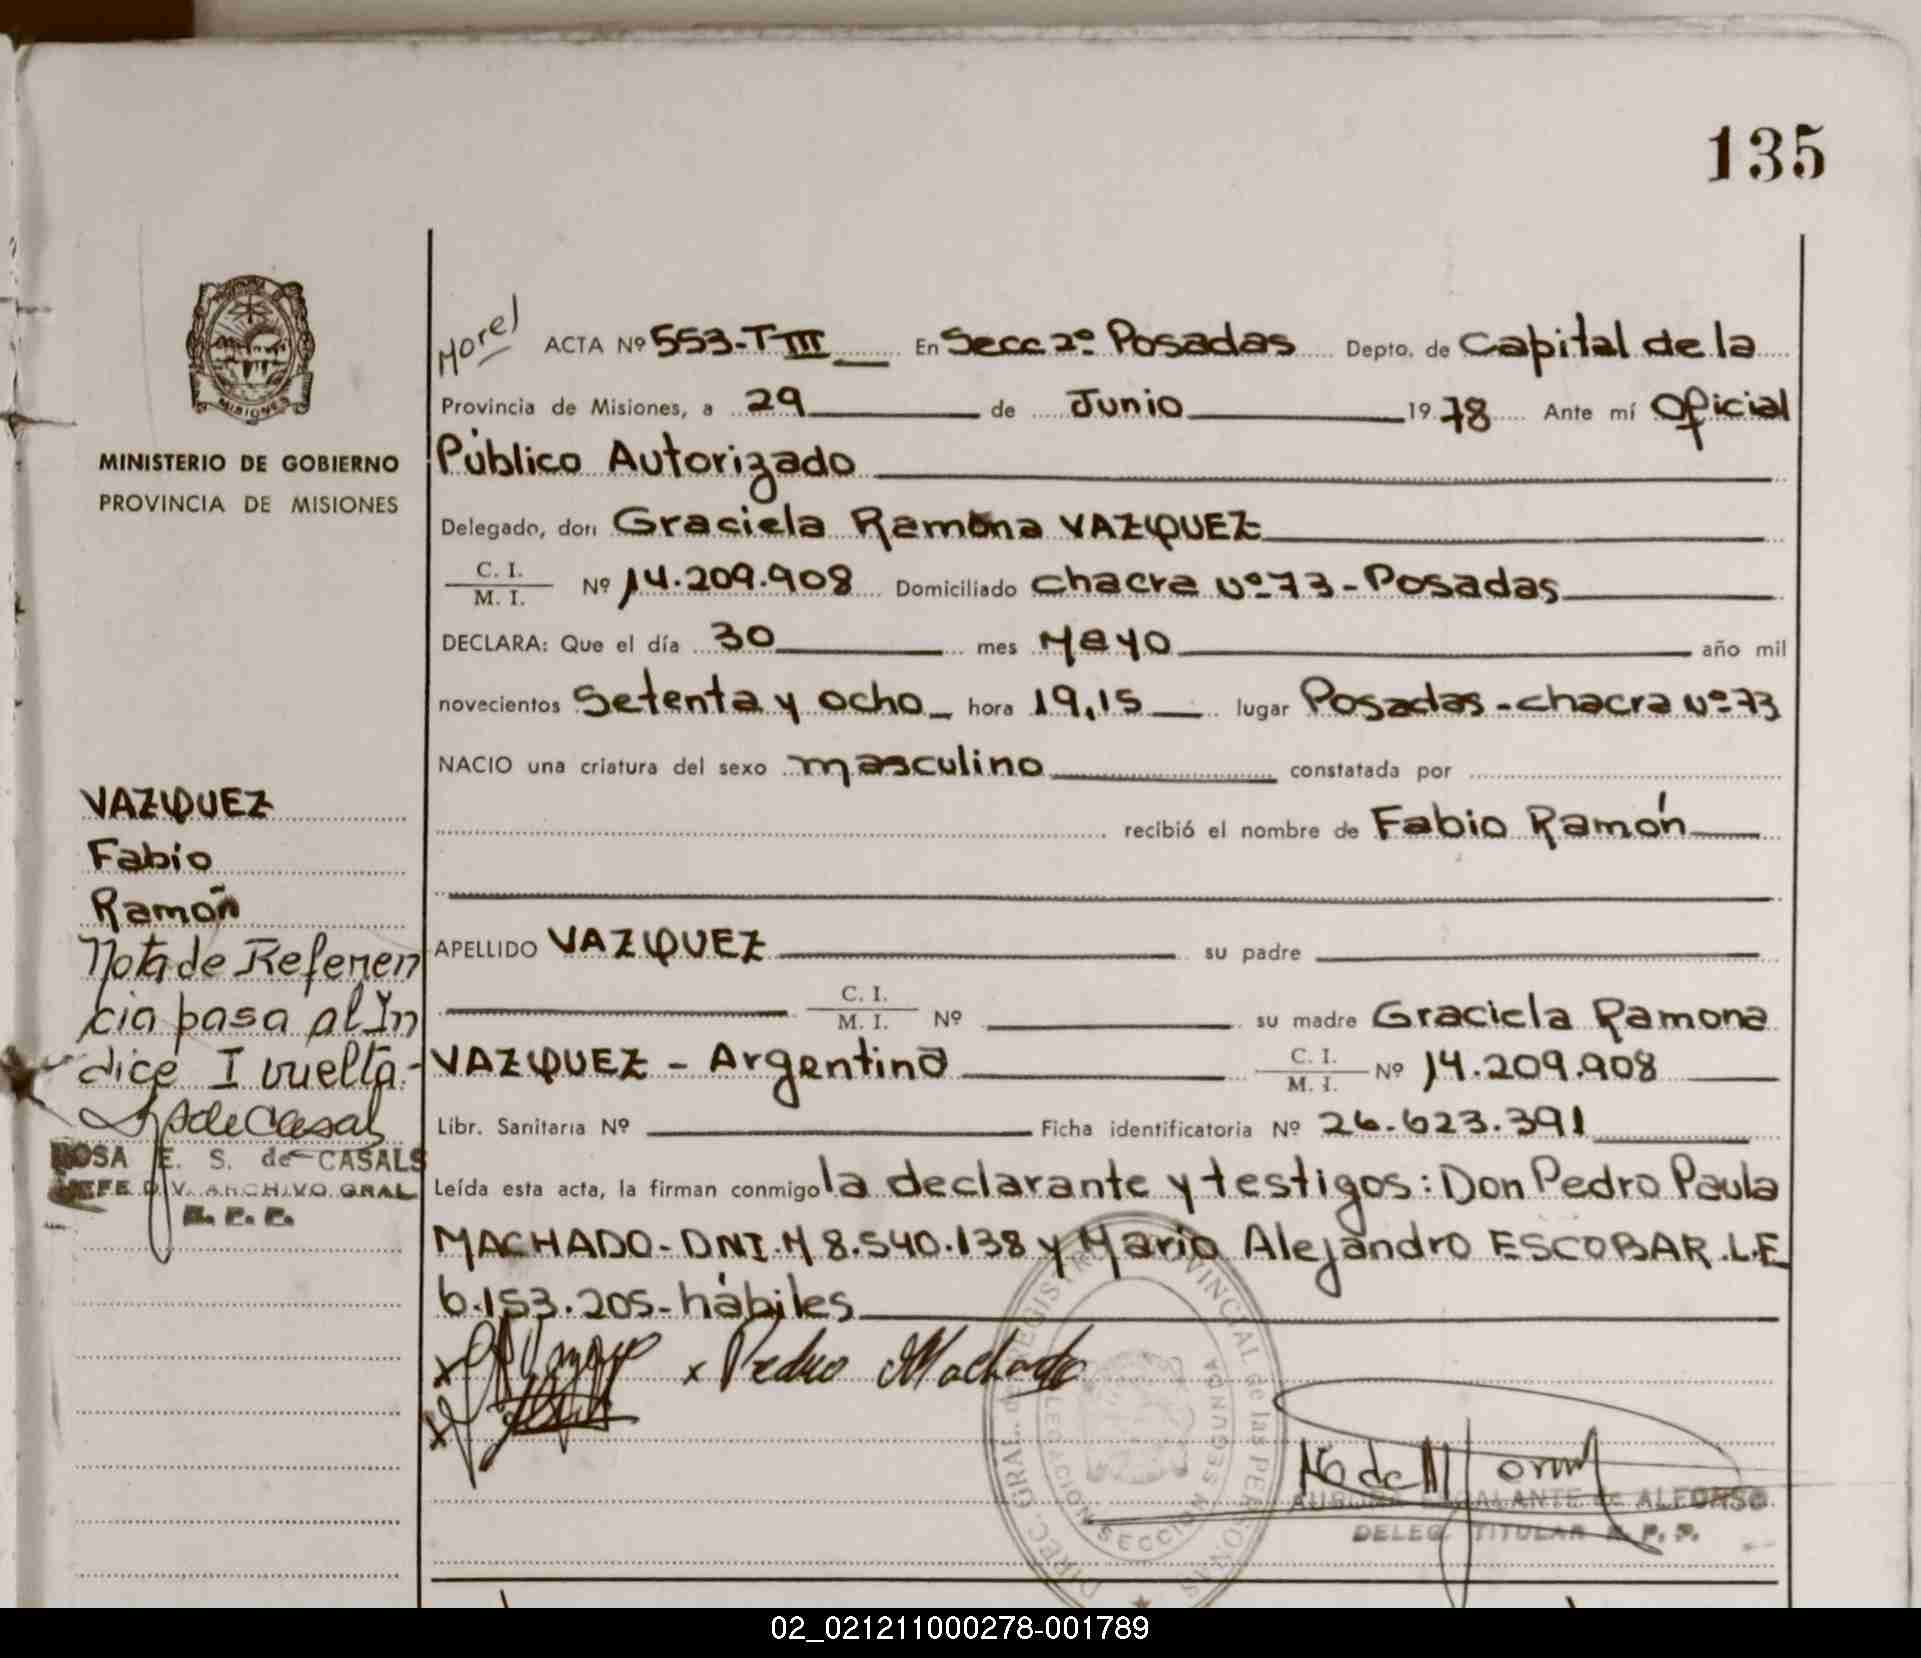 135
Morel ACTA Nº 553-T-III En Secc 2º Posadas Depto. de Capital de la
Provincia de Misiones, a 29 de Junio 1978 Ante mí Oficial
Público Autorizado
Delegado, don Graciela Ramona VAZQUEZ
C. I.
M. I. Nº 14.209.908 Domiciliado chacra Nº 73 - Posadas
DECLARA: Que el día 30 mes Mayo año mil
novecientos Setenta y ocho hora 19,15 lugar Posadas - chacra Nº 73
NACIO una criatura del sexo masculino constatada por
recibió el nombre de Fabio Ramón
APELLIDO VAZQUEZ su padre
C. I.
M. I. Nº su madre Graciela Ramona
VAZQUEZ - Argentina C. I.
M. I. Nº 14.209.908
Libr. Sanitaria Nº Ficha identificatoria Nº 26.623.391
Leída esta acta, la firman conmigo la declarante y testigos: Don Pedro Paula
MACHADO - DNI. M 8.540.138 y Mario Alejandro ESCOBAR. L.E
6.153.205 - hábiles
x x Pedro Machado
x
DIREC. GRAL. de REGISTRO PROVINCIAL de las PERSONAS
DELEGACION SECCION SEGUNDA
ESCALANTE de ALFONSO
DELEG. TITULAR R. P. P.
MISIONES
MINISTERIO DE GOBIERNO
PROVINCIA DE MISIONES
VAZQUEZ
Fabio
Ramón
Nota de Referen
cia pasa al In
dice I vuelta.-
S de Casals
ROSA E. S. de CASALS
JEFE DIV. ARCHIVO GRAL
R. P. P.
02_021211000278-001789